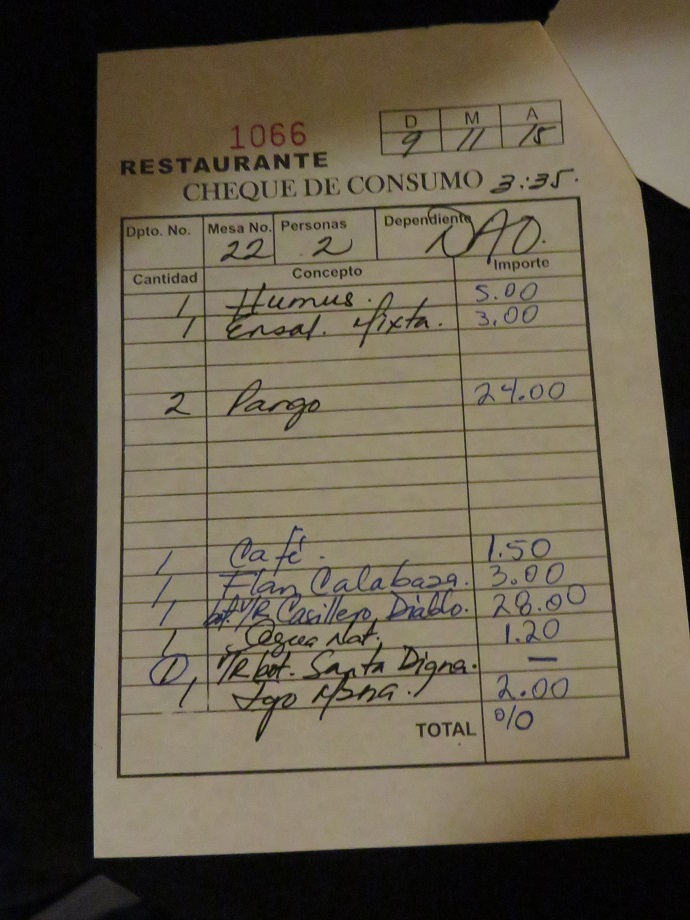 1066
D M A
9 11 15
RESTAURANTE
CHEQUE DE CONSUMO 3:35.
Dpto. No. Mesa No. Personas Dependiente
22 2
Cantidad Concepto Importe
1 Humus. 5.00
1 Ensal. Mixta. 3.00
2 Pargo 24.00
1 Café. 1.50
1 Flan Calabaza. 3.00
1 bot. V/R Casillero Diablo. 28.00
1 Agua Nat. 1.20
1 V/R bot. Santa Digna. —
1 Jgo 2.00
TOTAL %